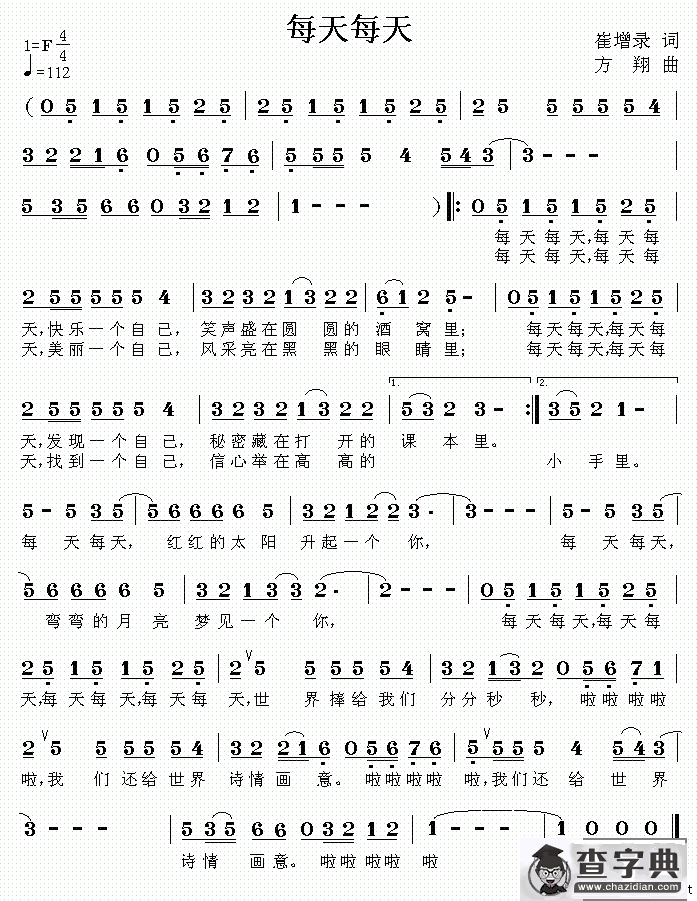 每天每天
1=F 4/4
♩=112
崔增录 词
方 翔 曲
(0 5 1 5 1 5 2 5 | 2 5 1 5 1 5 2 5 | 2 5 5 5 5 5 4 |
3 2 2 1 6 0 5 6 7 6 | 5 5 5 5 4 5 4 3 | 3 - - -
5 3 5 6 6 0 3 2 1 2 | 1 - - - ) ‖: 0 5 1 5 1 5 2 5 |
每天每天,每天每
每天每天,每天每
2 5 5 5 5 5 5 4 | 3 2 3 2 1 3 2 2 | 6 1 2 5 - | 0 5 1 5 1 5 2 5 |
天,快乐一个自己, 笑声盛在圆 圆的 酒 窝里; 每天每天,每天每
天,美丽一个自己, 风采亮在黑 黑的 眼 睛里; 每天每天,每天每
1. 2.
2 5 5 5 5 5 5 4 | 3 2 3 2 1 3 2 2 | 5 3 2 3 - :‖ 3 5 2 1 - |
天,发现一个自己, 秘密藏在打 开的 课 本里。
天,找到一个自己, 信心举在高 高的 小 手里。
5 - 5 3 5 | 5 6 6 6 6 5 | 3 2 1 2 2 3 · | 3 - - - | 5 - 5 3 5 |
每 天每天, 红红的太 阳 升起一个 你, 每 天每天,
5 6 6 6 6 5 | 3 2 1 3 3 2 · | 2 - - - | 0 5 1 5 1 5 2 5 |
弯弯的月 亮 梦见一个 你, 每天每天,每天每
2 5 1 5 1 5 2 5 | 2 ∨ 5 5 5 5 5 4 | 3 2 1 3 2 0 5 6 7 1 |
天,每天每天,每天每 天,世 界捧给我们 分分秒 秒, 啦啦啦啦
2 ∨ 5 5 5 5 5 4 | 3 2 2 1 6 0 5 6 7 6 | 5 ∨ 5 5 5 4 5 4 3 |
啦,我 们还给世界 诗情画 意。 啦啦啦啦 啦,我们还 给 世 界
3 - - - | 5 3 5 6 6 0 3 2 1 2 | 1 - - - | 1 0 0 0 ‖
诗情 画意。 啦啦 啦啦 啦
查字典
www.chazidian.com
t